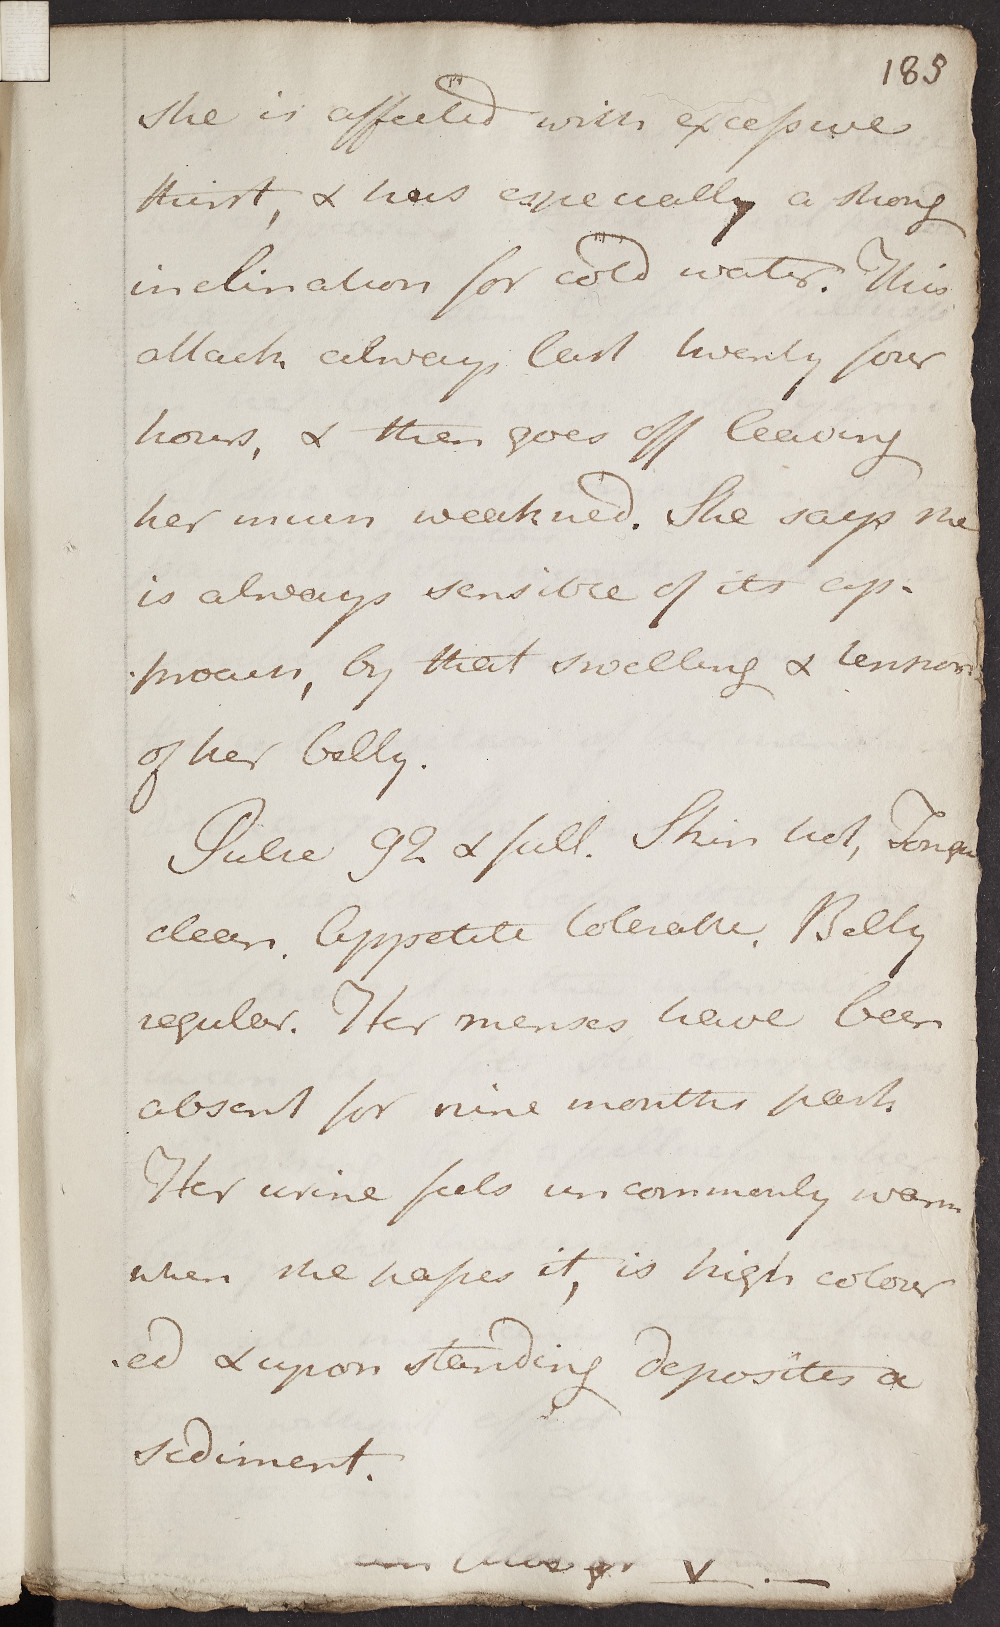 185
she is affected with excessive
thirst, & has especially a strong
inclination for cold water. This
attack always last twenty four
hours, & then goes off leaving
her much weakned. She says she
is always sensible of its ap-
-proach, by that swelling & tension
of her belly.
Pulse 92 & full. Skin hot, Tongue
clean. Appetite tolerable. Belly
regular. Her menses have been
absent for nine months past.
Her urine feels uncommonly warm
when she passes it, is high colour
-ed & upon standing deposites a
sediment.